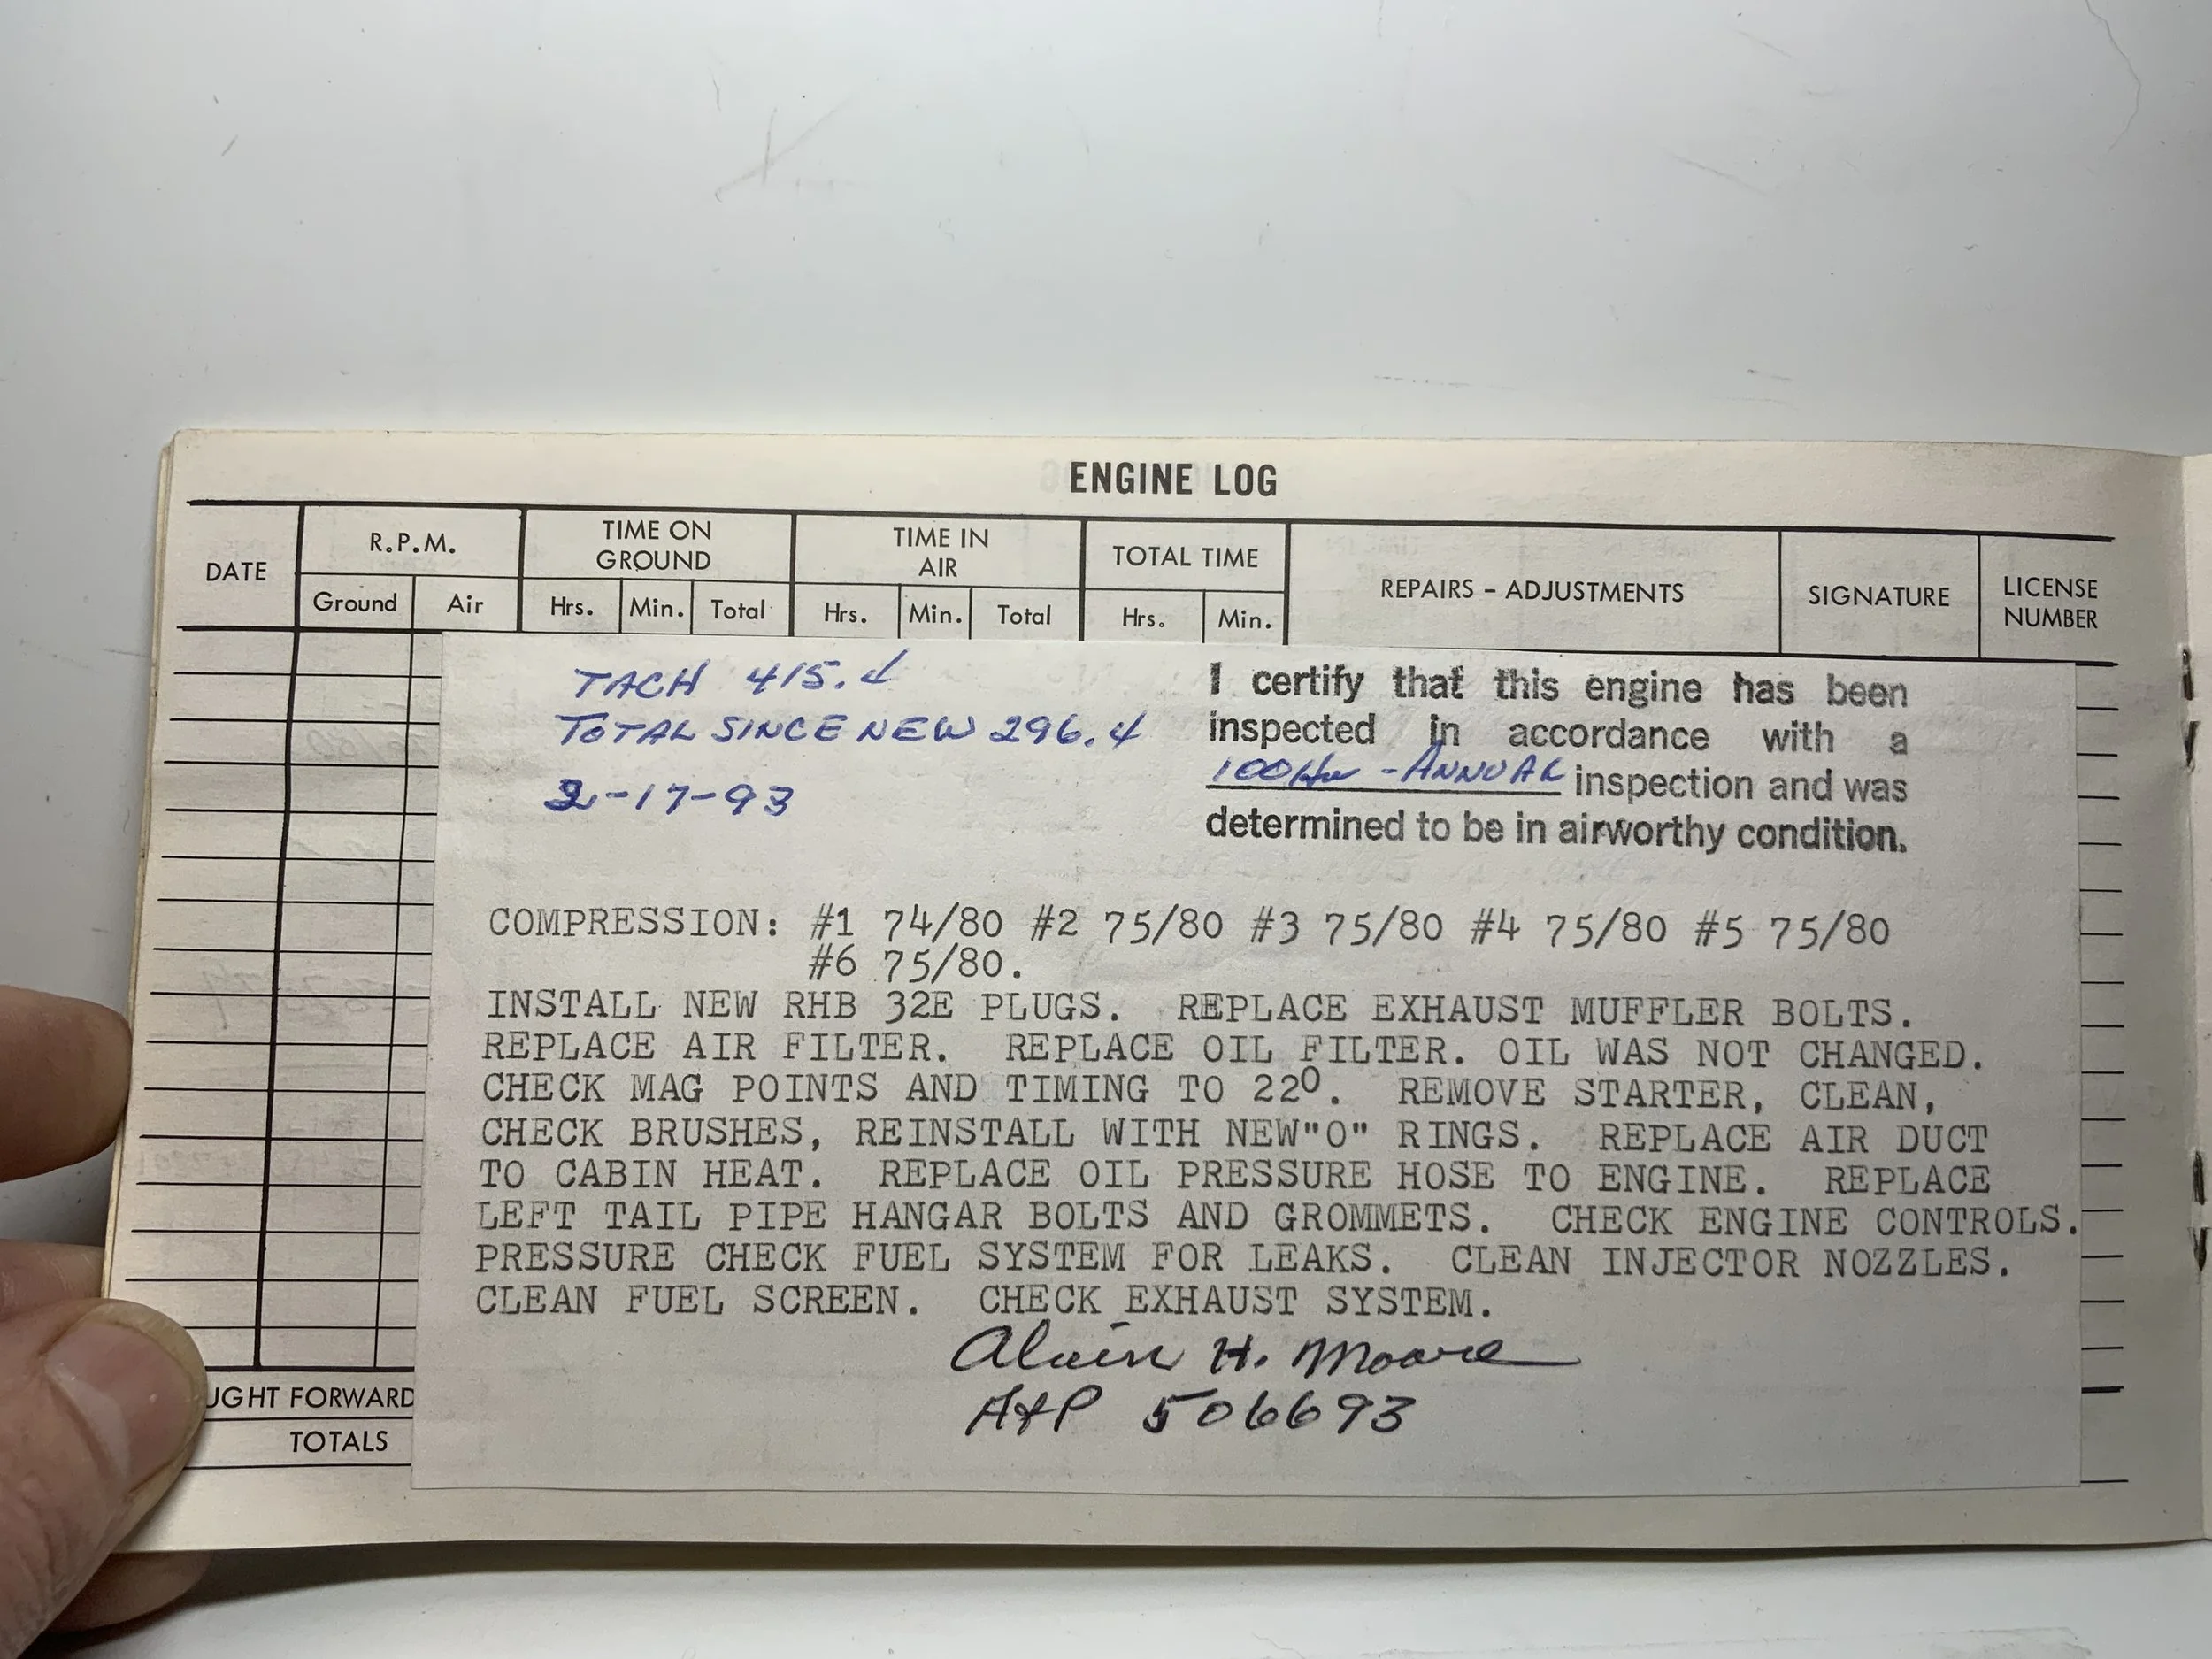 ENGINE LOG
DATE R.P.M. TIME ON GROUND TIME IN AIR TOTAL TIME REPAIRS – ADJUSTMENTS SIGNATURE LICENSE NUMBER
Ground Air Hrs. Min. Total Hrs. Min. Total Hrs. Min.
TACH 415.4
TOTAL SINCE NEW 296.4
2-17-93
I certify that this engine has been
inspected in accordance with a
100 Hr - ANNUAL inspection and was
determined to be in airworthy condition.
COMPRESSION: #1 74/80 #2 75/80 #3 75/80 #4 75/80 #5 75/80
#6 75/80.
INSTALL NEW RHB 32E PLUGS. REPLACE EXHAUST MUFFLER BOLTS.
REPLACE AIR FILTER. REPLACE OIL FILTER. OIL WAS NOT CHANGED.
CHECK MAG POINTS AND TIMING TO 22⁰. REMOVE STARTER, CLEAN,
CHECK BRUSHES, REINSTALL WITH NEW"O" RINGS. REPLACE AIR DUCT
TO CABIN HEAT. REPLACE OIL PRESSURE HOSE TO ENGINE. REPLACE
LEFT TAIL PIPE HANGAR BOLTS AND GROMMETS. CHECK ENGINE CONTROLS.
PRESSURE CHECK FUEL SYSTEM FOR LEAKS. CLEAN INJECTOR NOZZLES.
CLEAN FUEL SCREEN. CHECK EXHAUST SYSTEM.
H. Moore
A&P 506693
UGHT FORWARD
TOTALS